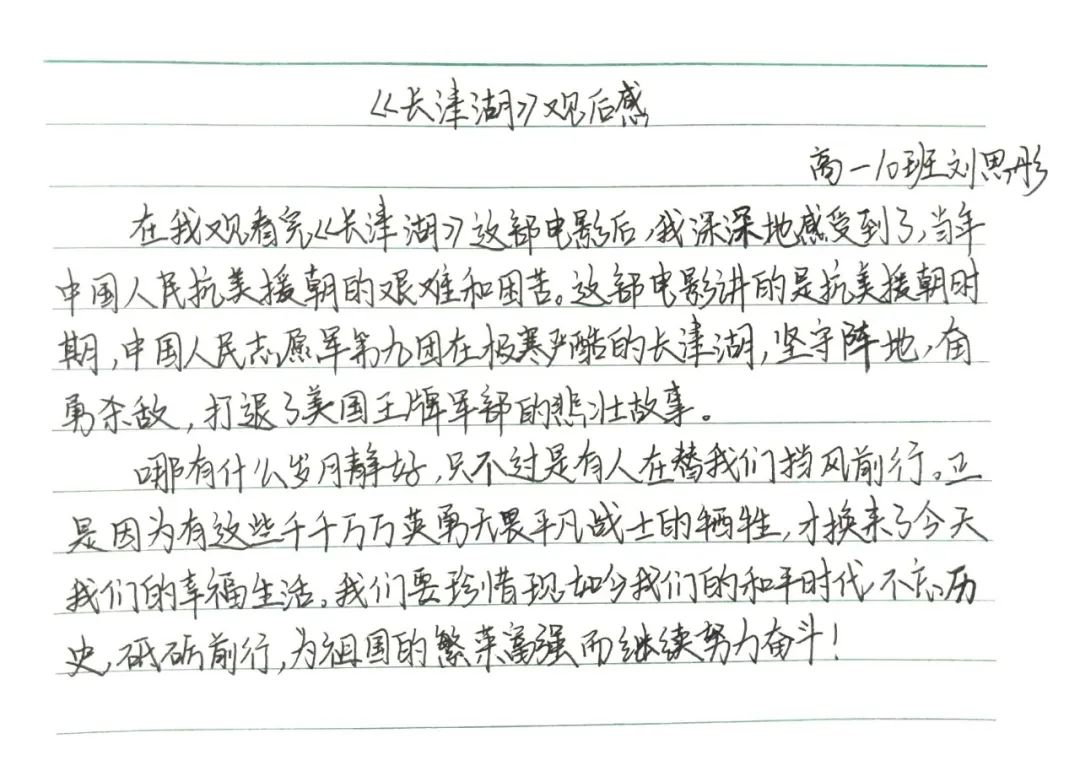 《长津湖》观后感
高一10班刘思彤
在我观看完《长津湖》这部电影后,我深深地感受到了,当年
中国人民抗美援朝的艰难和困苦。这部电影讲的是抗美援朝时
期,中国人民志愿军第九团在极寒严酷的长津湖,坚守阵地,奋
勇杀敌,打退了美国王牌军部的悲壮故事。
哪有什么岁月静好,只不过是有人在替我们挡风前行。正
是因为有这些千千万万英勇无畏平凡战士的牺牲,才换来了今天
我们的幸福生活。我们要珍惜现如今我们的和平时代,不忘历
史,砥砺前行,为祖国的繁荣富强而继续努力奋斗!